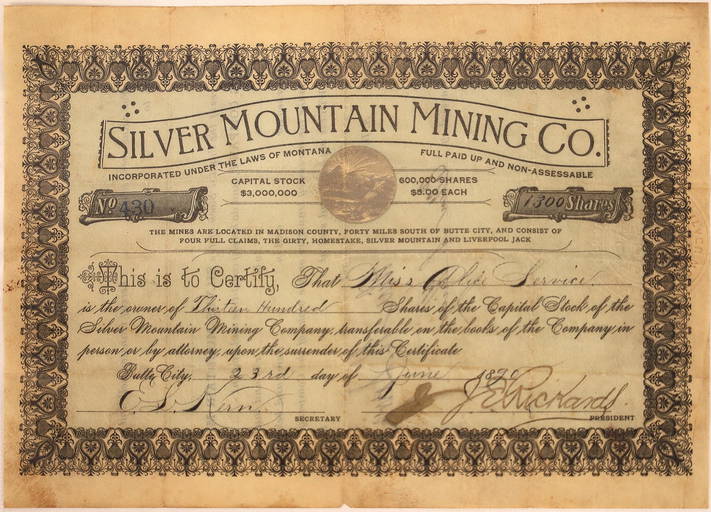 SILVER MOUNTAIN MINING CO.
INCORPORATED UNDER THE LAWS OF MONTANA
FULL PAID UP AND NON-ASSESSABLE
CAPITAL STOCK
$3,000,000
600,000 SHARES
$5.00 EACH
No 430
1300 Shares
THE MINES ARE LOCATED IN MADISON COUNTY, FORTY MILES SOUTH OF BUTTE CITY, AND CONSIST OF
FOUR FULL CLAIMS, THE GIRTY, HOMESTAKE, SILVER MOUNTAIN AND LIVERPOOL JACK
This is to Certify, That Miss Alice Service
is the owner of Thirteen Hundred Shares of the Capital Stock of the
Silver Mountain Mining Company, transferable on the books of the Company in
person or by attorney, upon the surrender of this Certificate
Butte City, 23rd day of June 1890
J.E. Rickards
SECRETARY
PRESIDENT